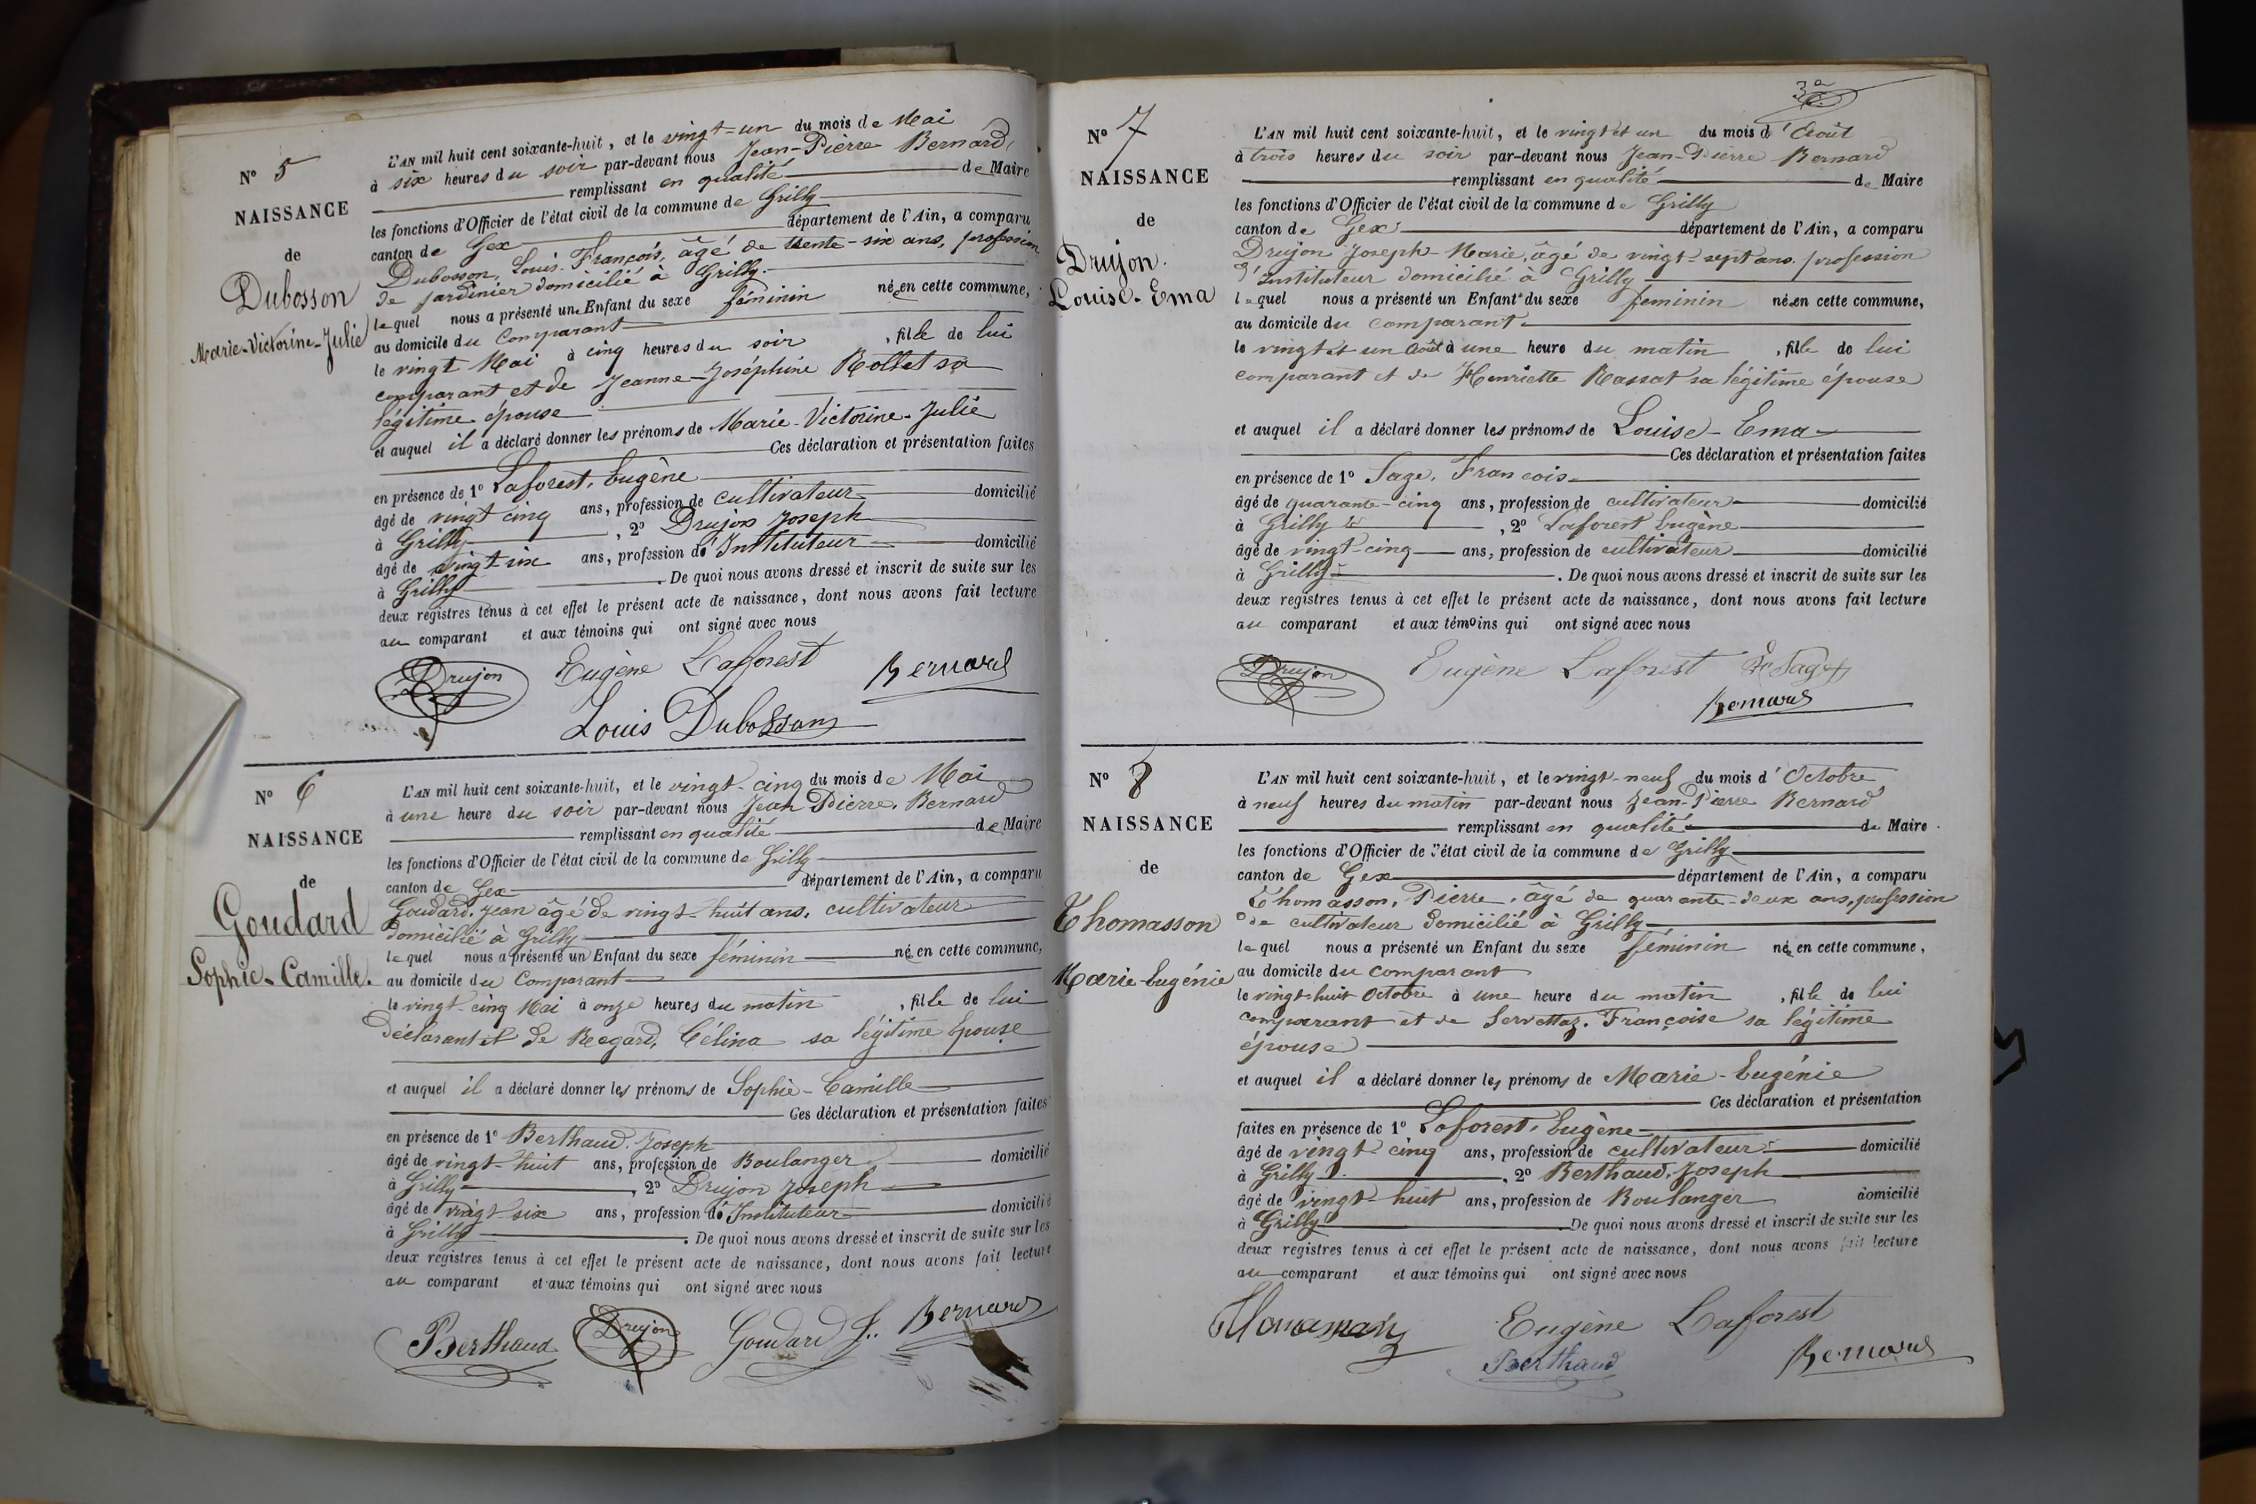 N° 5
NAISSANCE
de
Dubosson
Marie-Victorine-Julie
L'AN mil huit cent soixante-huit, et le vingt-un du mois de Mai
à six heures du soir par-devant nous Jean-Pierre Bernard,
remplissant en qualité de Maire
les fonctions d'Officier de l'état civil de la commune de Grilly
canton de Gex département de l'Ain, a comparu
Dubosson, Louis-François, âgé de trente-six ans, profession
de jardinier domicilié à Grilly.
lequel nous a présenté un Enfant du sexe féminin née en cette commune,
au domicile du Comparant
le vingt Mai à cinq heures du soir, fille de lui
comparant et de Jeanne-Joséphine Rollet sa
légitime épouse
et auquel il a déclaré donner les prénoms de Marie-Victorine-Julie
Ces déclaration et présentation faites
en présence de 1° Laforest, Eugène
âgé de vingt cinq ans, profession de cultivateur domicilié
à Grilly, 2° Drujon Joseph
âgé de vingt six ans, profession d'Instituteur domicilié
à Grilly. De quoi nous avons dressé et inscrit de suite sur les
deux registres tenus à cet effet le présent acte de naissance, dont nous avons fait lecture
au comparant et aux témoins qui ont signé avec nous
Drujon Eugène Laforest Bernard
Louis Dubosson
N° 6
NAISSANCE
de
Goudard
Sophie-Camille.
L'AN mil huit cent soixante-huit, et le vingt-cinq du mois de Mai
à une heure du soir par-devant nous Jean Pierre Bernard
remplissant en qualité de Maire
les fonctions d'Officier de l'état civil de la commune de Grilly
canton de Gex département de l'Ain, a comparu
Goudard, Jean âgé de vingt-huit ans, cultivateur
domicilié à Grilly
lequel nous a présenté un Enfant du sexe féminin née en cette commune,
au domicile du Comparant
le vingt-cinq Mai à onze heures du matin, fille de lui
déclarant et de Regard, Célina sa légitime Epouse
et auquel il a déclaré donner les prénoms de Sophie-Camille
Ces déclaration et présentation faites
en présence de 1° Berthaud Joseph
âgé de vingt-huit ans, profession de Boulanger domicilié
à Grilly, 2° Drujon Joseph
âgé de vingt-six ans, profession d'Instituteur domicilié
à Grilly. De quoi nous avons dressé et inscrit de suite sur les
deux registres tenus à cet effet le présent acte de naissance, dont nous avons fait lecture
au comparant et aux témoins qui ont signé avec nous
Berthaud Drujon Goudard J. Bernard
N° 7
NAISSANCE
de
Drujon.
Louise-Ema
L'AN mil huit cent soixante-huit, et le vingt et un du mois d'Août
à trois heures du soir par-devant nous Jean-Pierre Bernard
remplissant en qualité de Maire
les fonctions d'Officier de l'état civil de la commune de Grilly
canton de Gex département de l'Ain, a comparu
Drujon Joseph-Marie, âgé de vingt-sept ans, profession
d'Instituteur domicilié à Grilly
lequel nous a présenté un Enfant du sexe féminin née en cette commune,
au domicile du comparant
le vingt et un Août à une heure du matin, fille de lui
comparant et de Henriette Rassat sa légitime épouse
et auquel il a déclaré donner les prénoms de Louise-Ema
Ces déclaration et présentation faites
en présence de 1° Sage, François
âgé de quarante-cinq ans, profession de cultivateur domicilié
à Grilly, 2° Laforest Eugène
âgé de vingt-cinq ans, profession de cultivateur domicilié
à Grilly. De quoi nous avons dressé et inscrit de suite sur les
deux registres tenus à cet effet le présent acte de naissance, dont nous avons fait lecture
au comparant et aux témoins qui ont signé avec nous
Drujon Eugène Laforest Sage
Bernard
N° 8
NAISSANCE
de
Thomasson
Marie-Eugénie
L'AN mil huit cent soixante-huit, et le vingt-neuf du mois d'Octobre
à neuf heures du matin par-devant nous Jean-Pierre Bernard
remplissant en qualité de Maire
les fonctions d'Officier de l'état civil de la commune de Grilly
canton de Gex département de l'Ain, a comparu
Thomasson, Pierre, âgé de quarante-deux ans, profession
de cultivateur domicilié à Grilly
lequel nous a présenté un Enfant du sexe féminin née en cette commune,
au domicile du comparant
le vingt-huit Octobre à une heure du matin, fille de lui
comparant et de Servettaz, Françoise sa légitime
épouse
et auquel il a déclaré donner les prénoms de Marie-Eugénie
Ces déclaration et présentation
faites en présence de 1° Laforest, Eugène
âgé de vingt cinq ans, profession de cultivateur domicilié
à Grilly, 2° Berthaud, Joseph
âgé de vingt-huit ans, profession de Boulanger domicilié
à Grilly De quoi nous avons dressé et inscrit de suite sur les
deux registres tenus à cet effet le présent acte de naissance, dont nous avons fait lecture
au comparant et aux témoins qui ont signé avec nous
Eugène Laforest
Berthaud Bernard